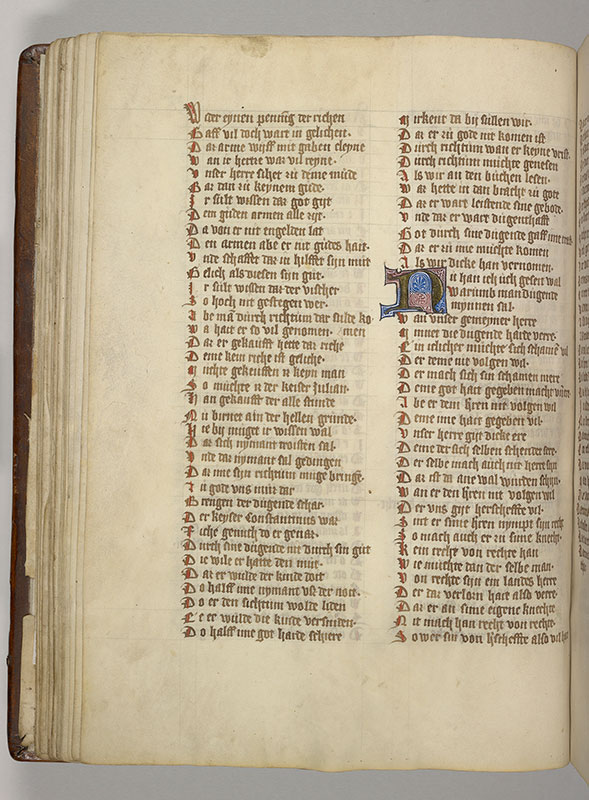 Wider eynen pennig der richen
Gaff vil doch wart in gelichen.
Dar arme wijff mit gaben cleyne
Wan ir hertze war vil reyne.
Vnser herre sihet zů deme můde
Bar dan zů keynem gůde.
Ir sult wissen dar got gijt
Dem gůden armen alle zijt.
Da von er nit engelden lat
Den armen abe er nit gůdes hait.
Vnde schaffet dar in hilffet sijn můt
Gelich als diesen sijn gůt.
Ir sult wissen dar der vischer
So hoch nit gestegen wer.
Abe man durch richtům dar sulde ko
Wa hait er so vil genomen. men
Dar er gekaufft hette dar riche
Deme kein riche ist geliche.
Mithte gekeuffen n keyn man
So můchte n der keiser Julian.
Han gekaufft der alle stunde
Nů birnet ain der hellen grunde.
Hie bij můget ir wissen wal
Dar sich nymant troisten sal.
Vnde dar nymant sal gedingen
Dar ine sijn richtům můge bringen.
Zů gode vns můz dar
Brengen der důgende schar.
Der keyser Constantinus was
Siche genůch do er genas.
Durch sine důgende nit durch sin gůt
Die wile er hatte den můt.
Dar er wůlde der kinde doit
Do halff ime nymant vsz der noit.
Do er den siechtům wolde liden
Ee er wůlde die kinde versniden.
Do halff ime got harde schiere
Mirkent da bij sůllen wir.
Dar er zů gode nit komen ist
Durch richtům wan er keyne vrist
Durch richtům můchte genesen
Als wir an den bůchen lesen.
War hette in dan bracht zů gote
Dar er wart leistende sine gebode.
Vnde dar er wart důgenthafft
Got durch sine důgende gaff ime
Dar er zů ime můchte komen
Als wir dicke han vernomen.
Nů han ich uch geseit wal
Warumb man důgende
mynnen sal.
Wan vnser gemeyner herre
Mmer die důgende harde verre.
Ein iclicher můchte sich schamen vil
Der deme nit volgen wil.
Der mach sich sin schamen mere
Deme got hait gegeben macht
Abe er dem hren nit volgen wil
Deme ime hait gegeben vil.
Vnser herre gijt dicke ere
Deme der sich selben schendet sere.
Der selbe mach auch nit herre sijn
Dar ist da ane wal wůrden schijn.
Wan er den hren nit volgen wil
Der vns gijt herscheffte vil.
Sint er sime hren nympt sijn recht
So mach auch er zů sime knecht.
Kein recht von rechte han
Wie můchte dan der selbe man.
Von rechte sijn ein landes herre
Der dar verlorn hait also verre.
Dar er an sine eigene knechte
Nit mach han recht von rechte.
So wer sin von hscheffte also vil hait